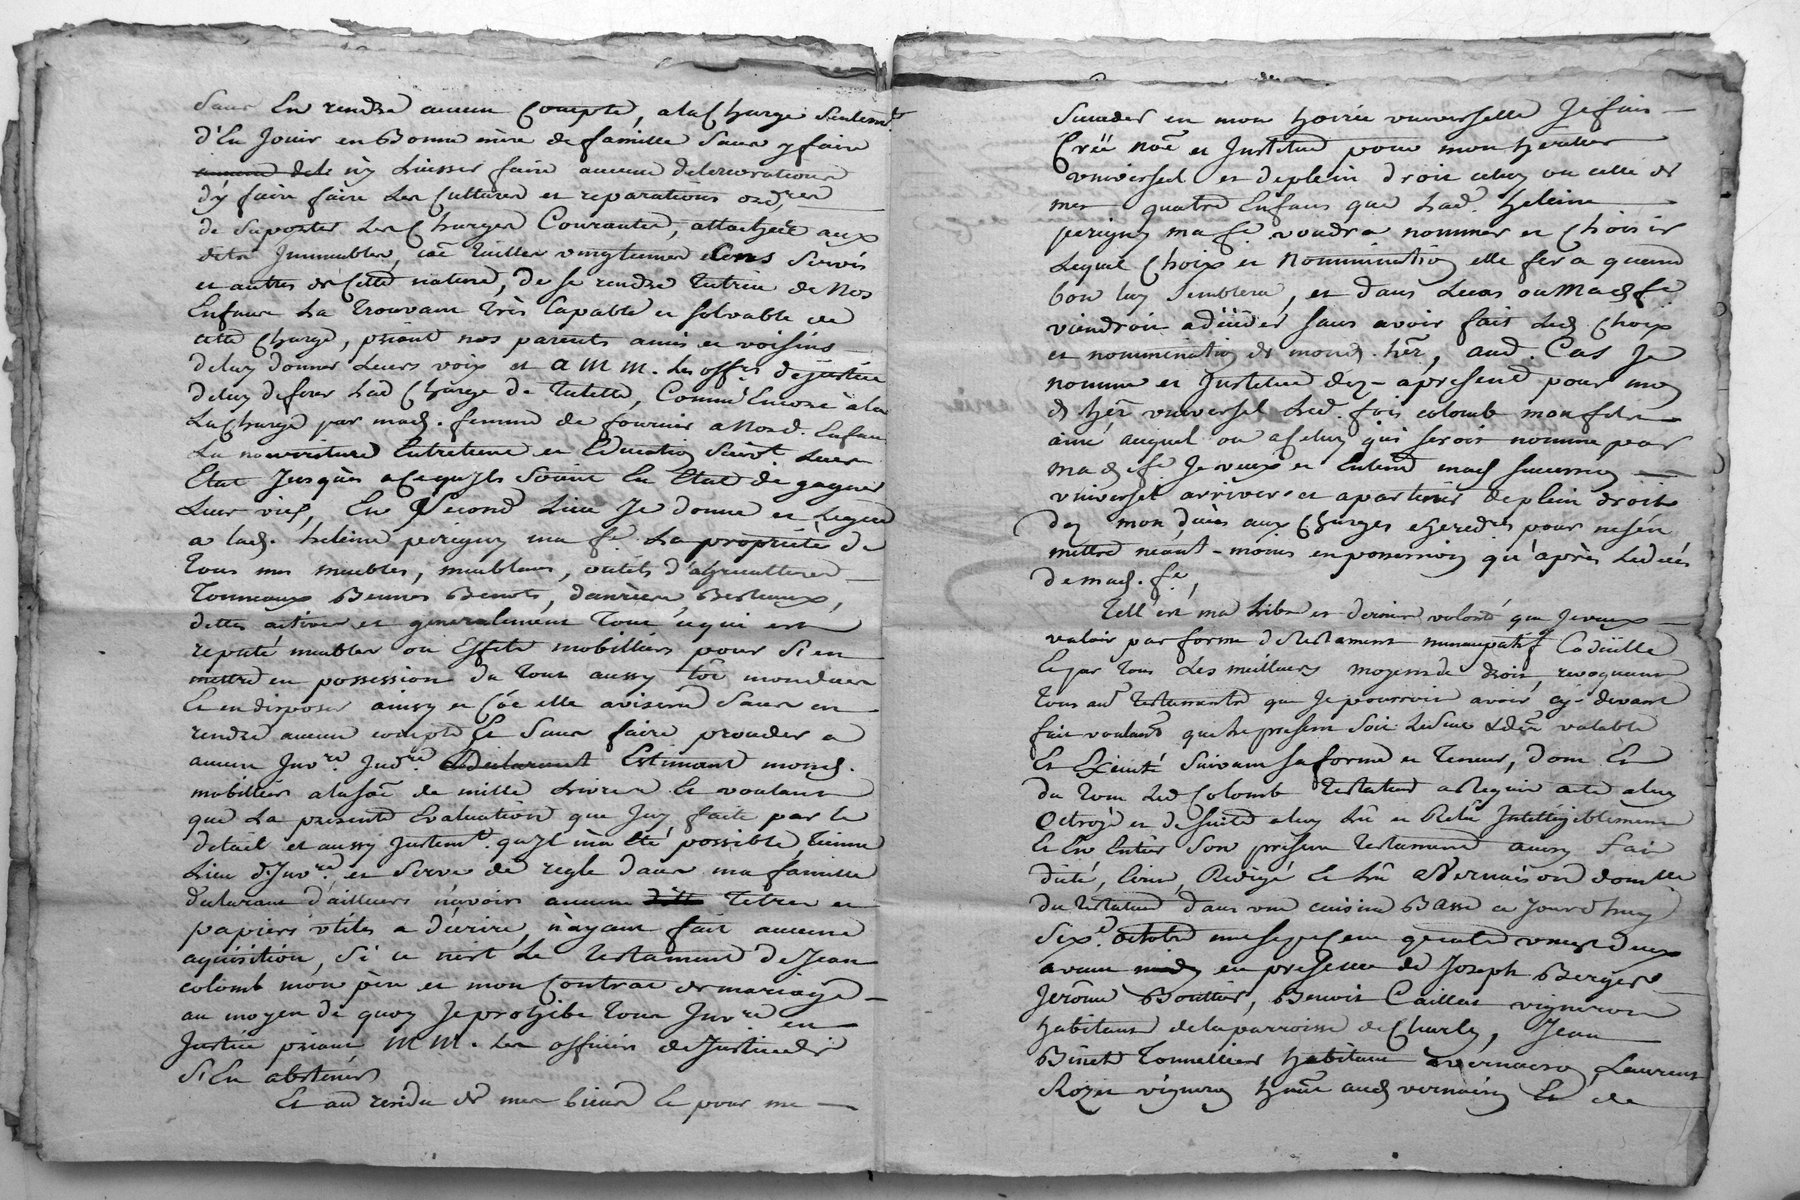 Sans En rendre aucun Compte, ala Charge Seulemt.
d'En Jouir en Bonne mère de famille Sans y faire
ny Laisser faire aucune deteriorations
d'y faire faire Les Cultures et reparations ord.res
de Suporter Les Charges Courantes, attachées aux
dits Immeubles, cõe tailles vingtiemes Cens Servis
et autres de Cette nature, de se rendre tutrice de Nos
Enfans La trouvant très Capable et solvable de
cette Charge, priant nos parents amis et voisins
deluy donner Leurs voix et a M M. Les off.rs de justice
deluy deferer Lad Charge de tutelle, Comme Encore àla
La Charge par mad. femme de fournir a Nosd. Enfans
La nourriture Entretient et Education Suivt. Leur
Etat Jusqu'às acequ'Ils Soint En Etat de gagner
Leur vie, En Second Lieu Je donne et Legue
a lad. heleine perigny ma fe. La propriété de
tous mes meubles, meublans, outils d'agricultures
Tonneaux Bennes Benots, danrées Bestiaux,
dettes actives et generalement tout cequi est
reputé meubles ou Effets mobilliers pour S'en
mettre en possession du tout aussy tôt mon deces
Et en disposer ainsy et Cõe elle avisera Sans en
rendre aucun compte Et Sans faire proceder a
aucun Inv.re Jud.re Estimant mond.
mobillier alasõe de mille Livres Et voulant
que La presente Evaluation que J'ay faite par le
detail et aussy justemt. qu'Il m'a Eté possible tienne
Lieu d'Inv.re et Serve de regle dans ma famille
declarant d'ailleurs n'avoir aucuns titres et
papiers utiles a décrire, n'ayant fait aucune
aquisition, Si ce n'est Le testament de Jean
colomb mon père et mon Contrat de mariage
au moyen de quoy Je prohibe tous Inv.re en
Justice priant M M. Les officiers de Justice de
S'En abstenir
Et au residu de mes biens Et pour me
Succeder en mon hoirie universelle Je fais
Créé nõe et Institue pour mon heritier
universel et deplein droit celuy ou celle de
mes quatre Enfans que Lad. heleine
perigny ma fe. voudra nommer et Choisir
Lequel Choix et Nominination elle fera quand
bon luy Semblera, et dans Le cas ou Mad fe.
viendroit a décéder sans avoir fait Led. Choix
et nominination de mond. her, aud. Cas Je
nomme et Institue dez-àpresent pour mon
d her universel Led. fois colomb mon fils
ainé auquel ou aCeluy qui seroit nommé par
mad. fe. Je veux et Entend mad succession
universel arriver et apartenir deplein droit
dez mon décès aux Charges et heredres pour nesén
mettre néant-moins en possession qu'après Ledecés
de mad. fe,
Tell'est ma Libre et derniere volonté que Je veux
valoir par forme de testament nuncupatif Codicille
Et par tous Les meilleurs moyens de droit, revoquant
tous aut testaments que Je pourrois avoir cy-devant
fait voulant que Le present Soit Le Seul valable
Et Exécuté Suivant sa forme et teneur, dont Et
du tout Led Colomb testateur a Requis acte aluy
Octroyé et de suitte aluy Lû et Relû Intelligiblement
Et En Entier Son présent testament ainsy fait
dicté, Redigé Et Lû a Vernaison domille
du testateur dans une cuisine Basse ce Jourd'huy
Sixe. octobre mil sept Cent quatre vingt deux
avant midy en presence de Joseph Berger
Jerôme Bouttier, Benoit Caillat vignerons
habitans de la parroisse de Charly, Jean
Binet Tonnellier habitant avernaison, Laurent
Rozet vigneron hant aud vernaison Et de